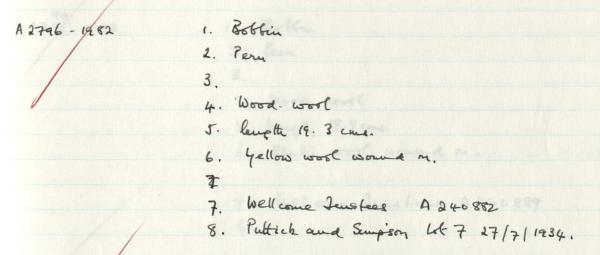 A2796-1982 1. Bobbin
2. Peru
3.
4. Wood. wool
5. length 19.3 cms.
6. Yellow wool wound on.
7
7. Wellcome Trustees A 240882
8. Puttick and Simpson Lot 7 27/7/1934.